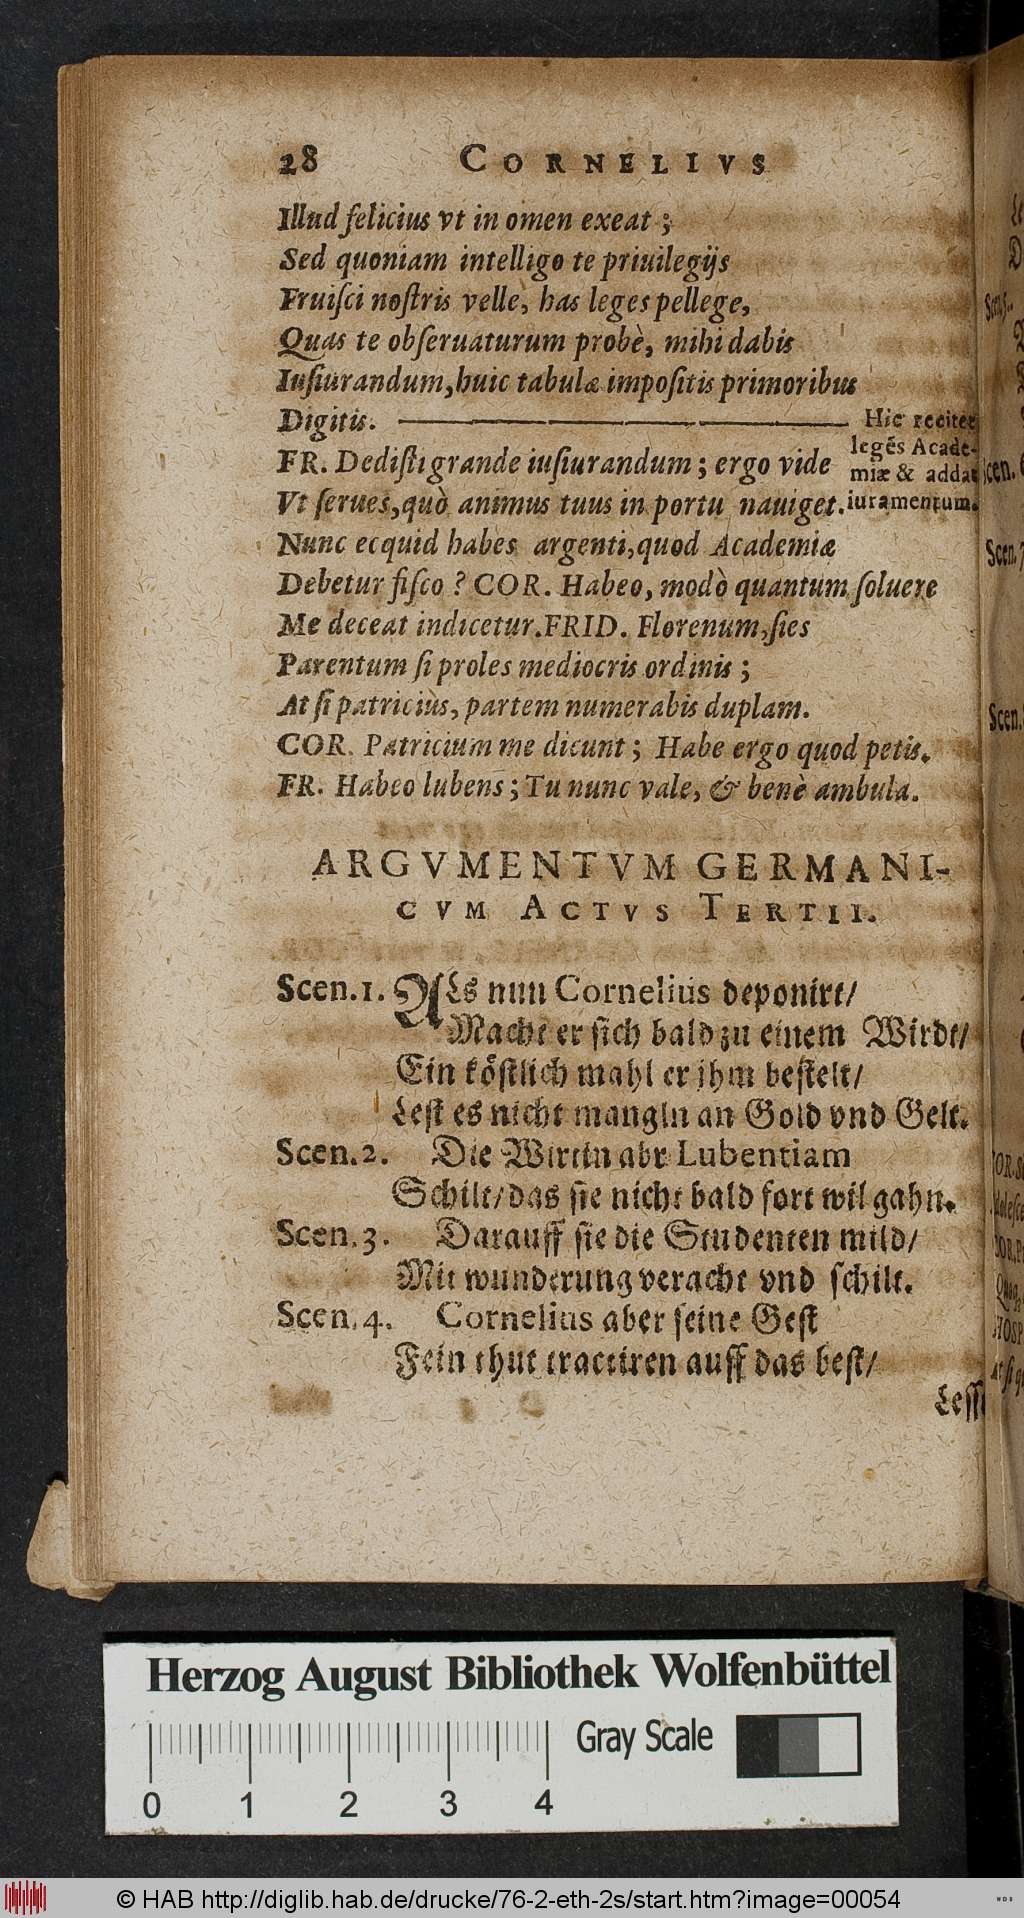 28 CORNELIVS
Illud felicius vt in omen exeat ;
Sed quoniam intelligo te priuilegijs
Fruiſci noſtris velle, has leges pellege,
Quas te obſeruaturum probè, mihi dabis
Iuſiurandum, huic tabulæ impoſitis primoribus
Digitis. ————
Hic recitet
leges Acade-
miæ & addat
iuramentum.
FR. Dediſti grande iuſiurandum ; ergo vide
Vt ſerues, quò animus tuus in portu nauiget.
Nunc ecquid habes argenti, quod Academiæ
Debetur fiſco ? COR. Habeo, modò quantum ſoluere
Me deceat indicetur. FRID. Florenum, ſies
Parentum ſi proles mediocris ordinis ;
At ſi patricius, partem numerabis duplam.
COR. Patricium me dicunt ; Habe ergo quod petis.
FR. Habeo lubens ; Tu nunc vale, & benè ambula.
ARGVMENTVM GERMANI-
CVM ACTVS TERTII.
Scen. 1. ALs nun Cornelius deponirt/
Macht er ſich bald zu einem Wirdt/
Ein köſtlich mahl er jhm beſtelt/
Leſt es nicht mangln an Gold vnd Gelt.
Scen. 2. Die Wirtin abr Lubentiam
Schilt/ das ſie nicht bald fort wil gahn.
Scen. 3. Darauff ſie die Studenten mild/
Mit wunderung veracht vnd ſchilt.
Scen. 4. Cornelius aber ſeine Geſt
Fein thut tractiren auff das beſt/
Leſſt
Herzog August Bibliothek Wolfenbüttel
Gray Scale
0 1 2 3 4
© HAB http://diglib.hab.de/drucke/76-2-eth-2s/start.htm?image=00054